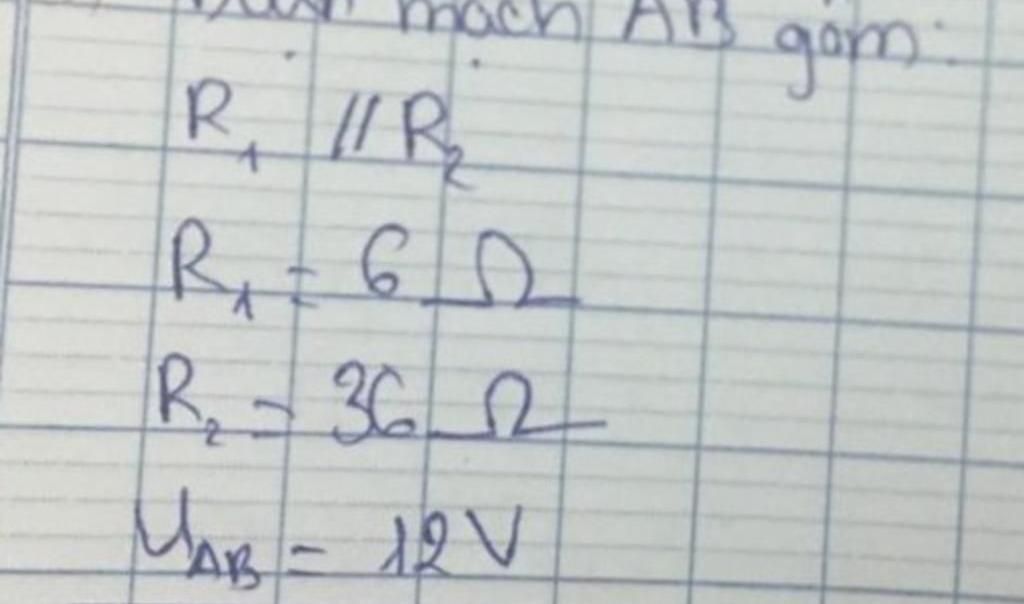 mach AB gồm:
R₁ // R₂
R₁ = 6 Ω
R₂ = 36 Ω
U_AB = 12 V